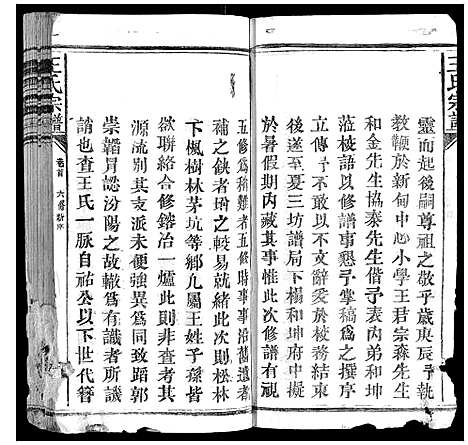 王氏宗譜
靈而起後嗣尊祖之敬乎歲庚辰予執
教鞭於新甸中心小學王君宗森先生
和金先生協泰先生偕予表丙弟和坤
蒞校語以修譜事懇予掌稿為之撰序
立傳予不敢以不文辭爰於校務結束
後遂至夏三坊譜局下榻和坤府中擬
於暑假期內藏其事惟此次修譜有視
五修為稱難者五修時事近沿舊遺者
補之缺者增之較易就緒此次則松林
下楓樹林茅坑等鄉凡屬王姓子孫皆
欲聯絡合修鎔冶一爐此則非查考其
源流別其支派未便強異為同致蹈郭
崇韜冒認汾陽之故轍為有識者所譏
誚也查王氏一脈自祐公以下世代簪
王氏宗譜
卷首
六修新序